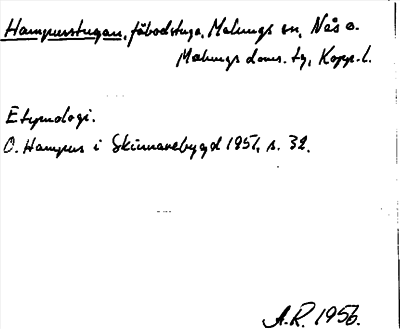 Hampusstugan, fäbodstuga, Malungs sn, Nås o.
Malungs doms. tg, Kopp. l.
Etymologi.
O. Hampus i Skinnarebygd 1951, s. 32.
A.R. 1956.